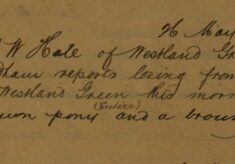 May
W Hale of Westland Gr
ham reports losing from
Westland Green this morn
(Entire)
pony and a brow